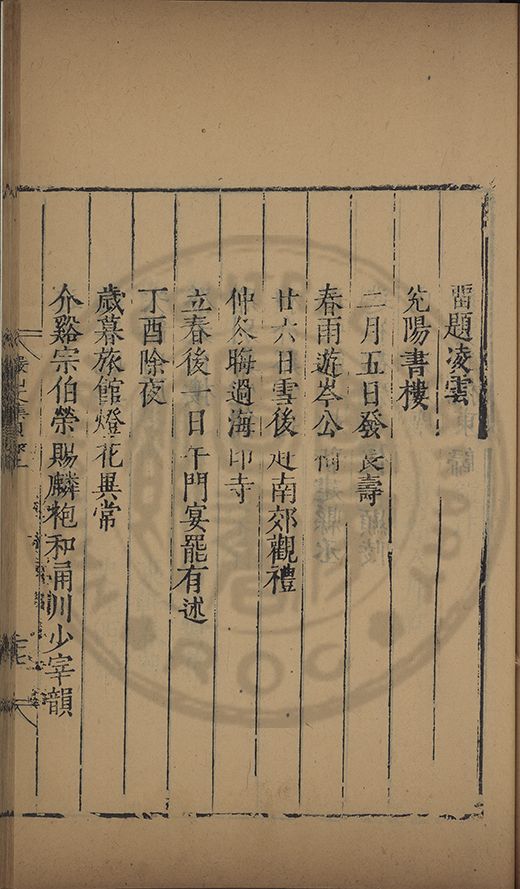 留題凌雲
兖陽書樓
二月五日發長壽
春雨遊岑公
廿六日雪後赴南郊觀禮
仲冬晦過海印寺
立春後十日午門宴罷有述
丁酉除夜
歲暮旅館燈花異常
介谿宗伯榮賜麟袍和甬川少宰韻